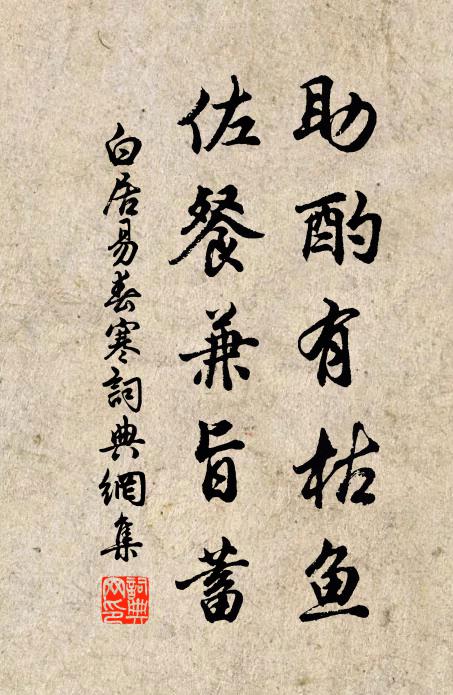 助酌有枯鱼
佐餐兼旨蓄
白居易春寒詞典網集
詞典网印